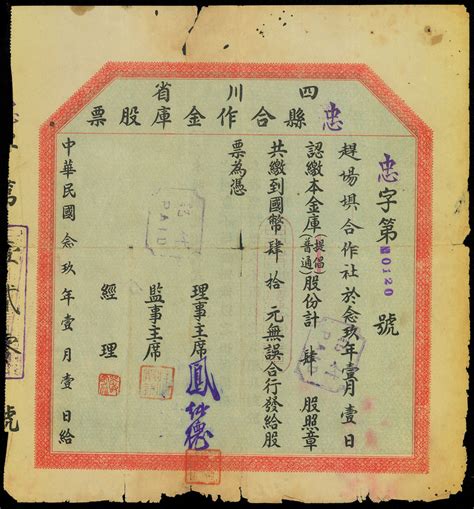 四川省
忠縣合作金庫股票
忠字第0120號
趕場埧合作社於念玖年壹月壹日
認繳本金庫(提倡普通)股份計肆股照章
共繳到國幣肆拾元無誤合行發給股
票為憑
理事主席
監事主席
經理
中華民國念玖年壹月壹日給
PAID
第壹貳零號